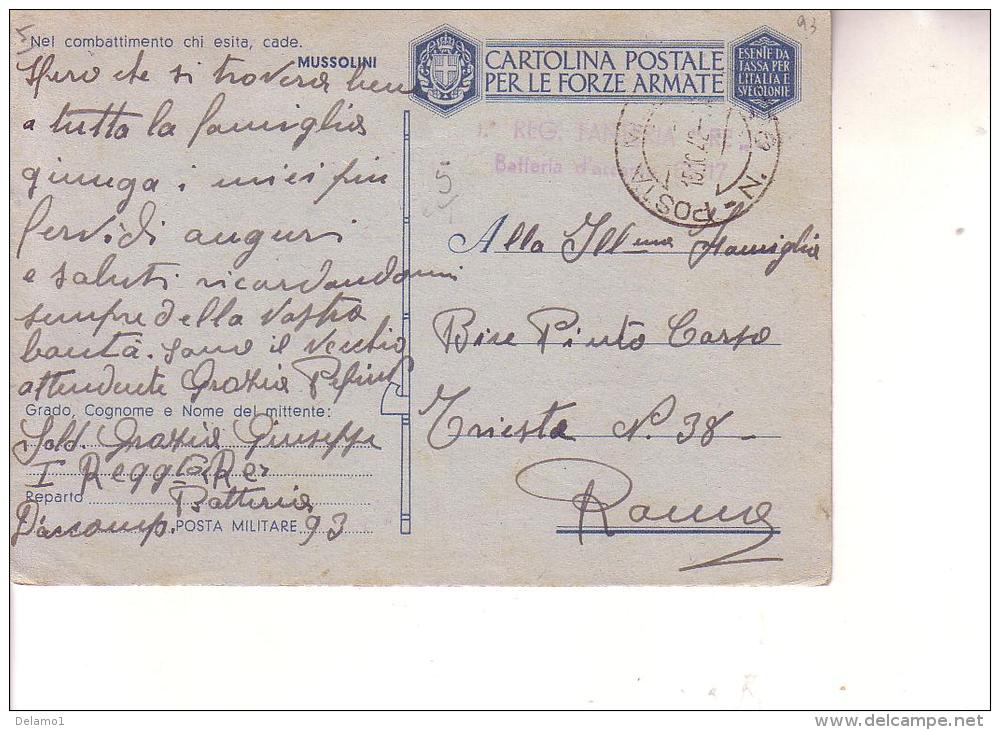 93
Nel combattimento chi esita, cade.
MUSSOLINI
Spero che si troverà bene
a tutta la famiglia
giunga i miei più
fervidi auguri
e saluti ricordandomi
sempre della vostra
bontà. Sono il vecchio
attendente Grazia
Grado, Cognome e Nome del mittente:
Sold. Grazia Giuseppe
I Regg
Reparto Batteria
D'accomp. POSTA MILITARE 93
CARTOLINA POSTALE
PER LE FORZE ARMATE
ESENTE DA
TASSA PER
L'ITALIA E
SUE COLONIE
REG. FANTERIA
Batteria d'acc
POSTA N.
5
Alla Ill ma Famiglia
Pinto Corso
Trieste N. 38
Roma
Delamo1
delcampe.net